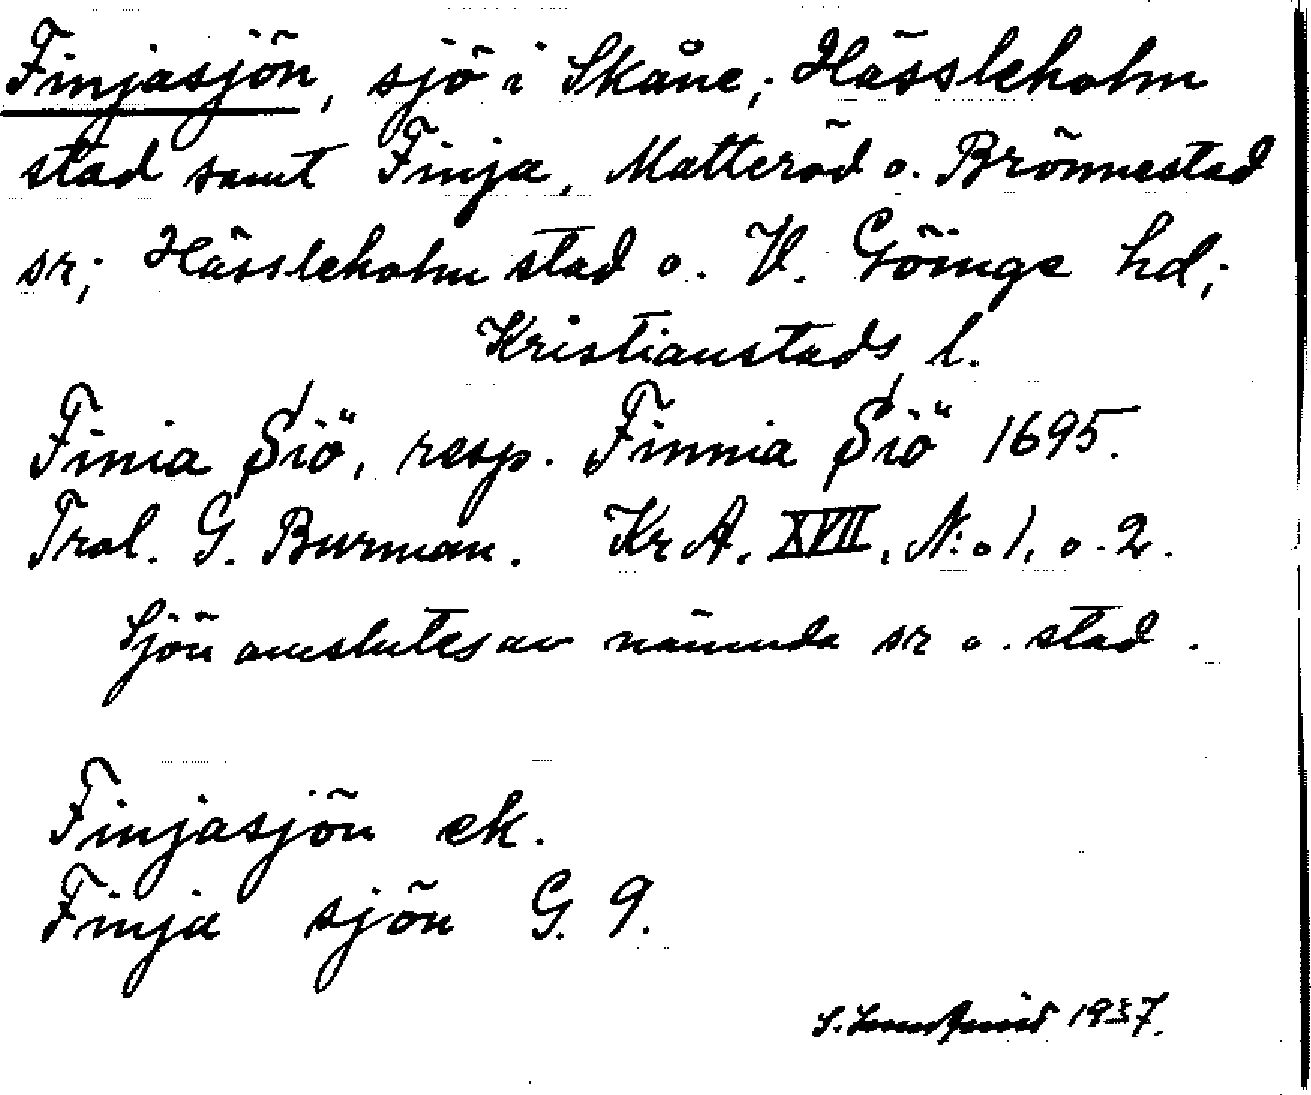 Finjasjön, sjö i Skåne; Hässleholm
stad samt Finja, Matteröd o. Brönnestad
sr; Hässleholm stad o. V. Göinge hd;
Kristianstads l.
Finia Siö, resp. Finnia Siö 1695.
Trol. G. Burman. Kr A. XVII, N:o 1, o. 2.
Sjön omslutes av nämnda sr o. stad.
Finjasjön ek.
Finja sjön G. 9.
S. 1937.